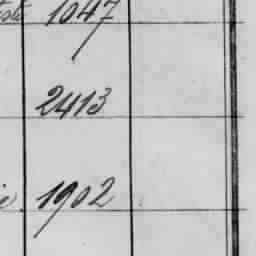 1047
2413
1902